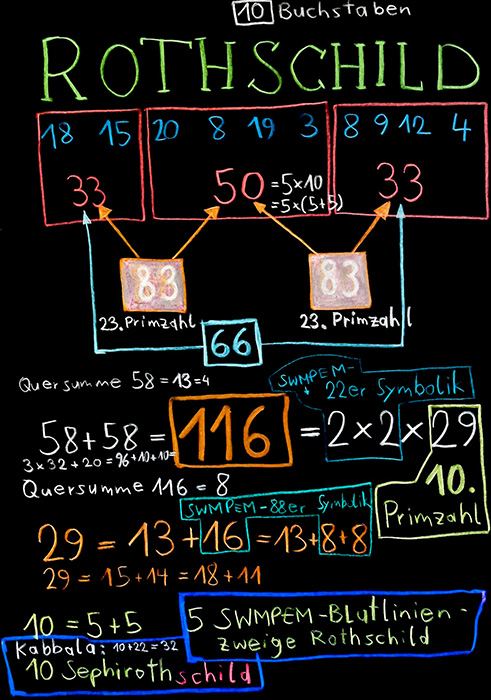 10 Buchstaben
ROTHSCHILD
18 15 20 8 19 3 8 9 12 4
33 50 =5×10 33
=5×(5+5)
83 83
23. Primzahl 23. Primzahl
66
Quersumme 58=13=4
SWMPEM-
22er Symbolik
58+58= 116 = 2×2×29
3×32+20=96+10+10=
Quersumme 116=8
10.
Primzahl
SWMPEM-88er Symbolik
29=13+16=13+8+8
29=15+14=18+11
10=5+5
5 SWMPEM-Blutlinien-
zweige Rothschild
Kabbala: 10+22=32
10 Sephirothschild